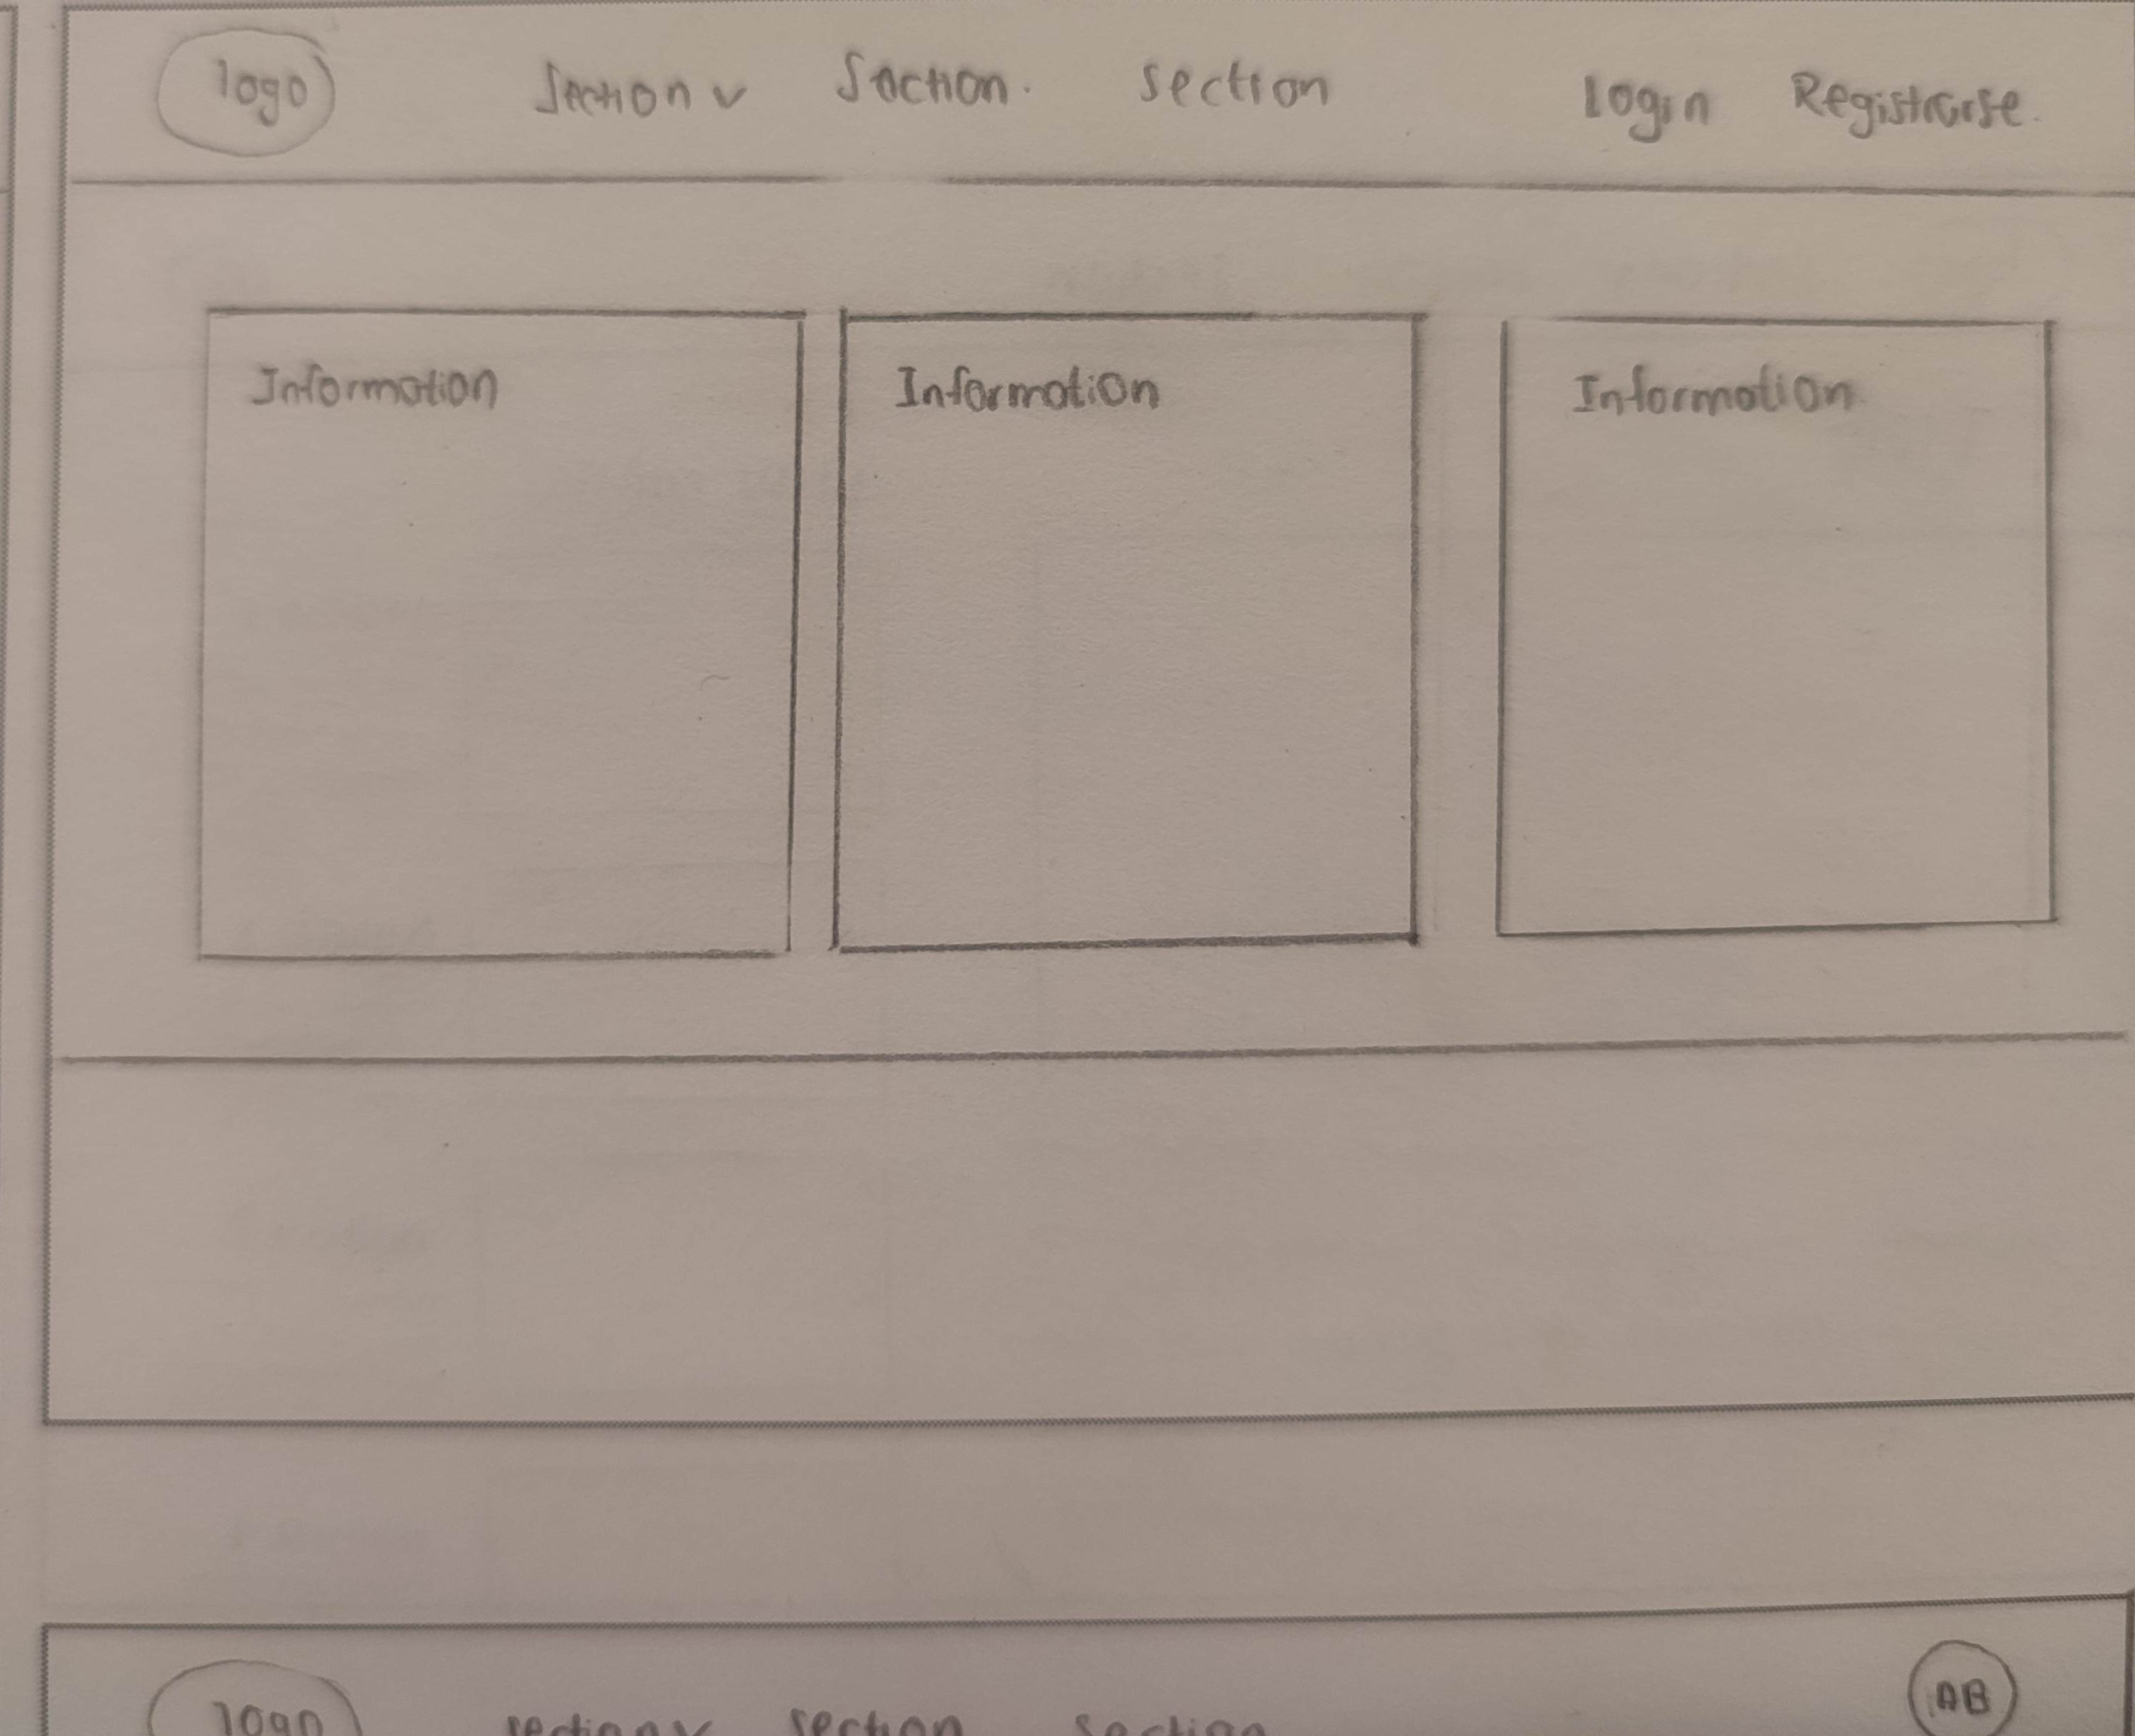 logo Section v Section. Section Login Registrarse.
Information Information Information
logo section v section section AB